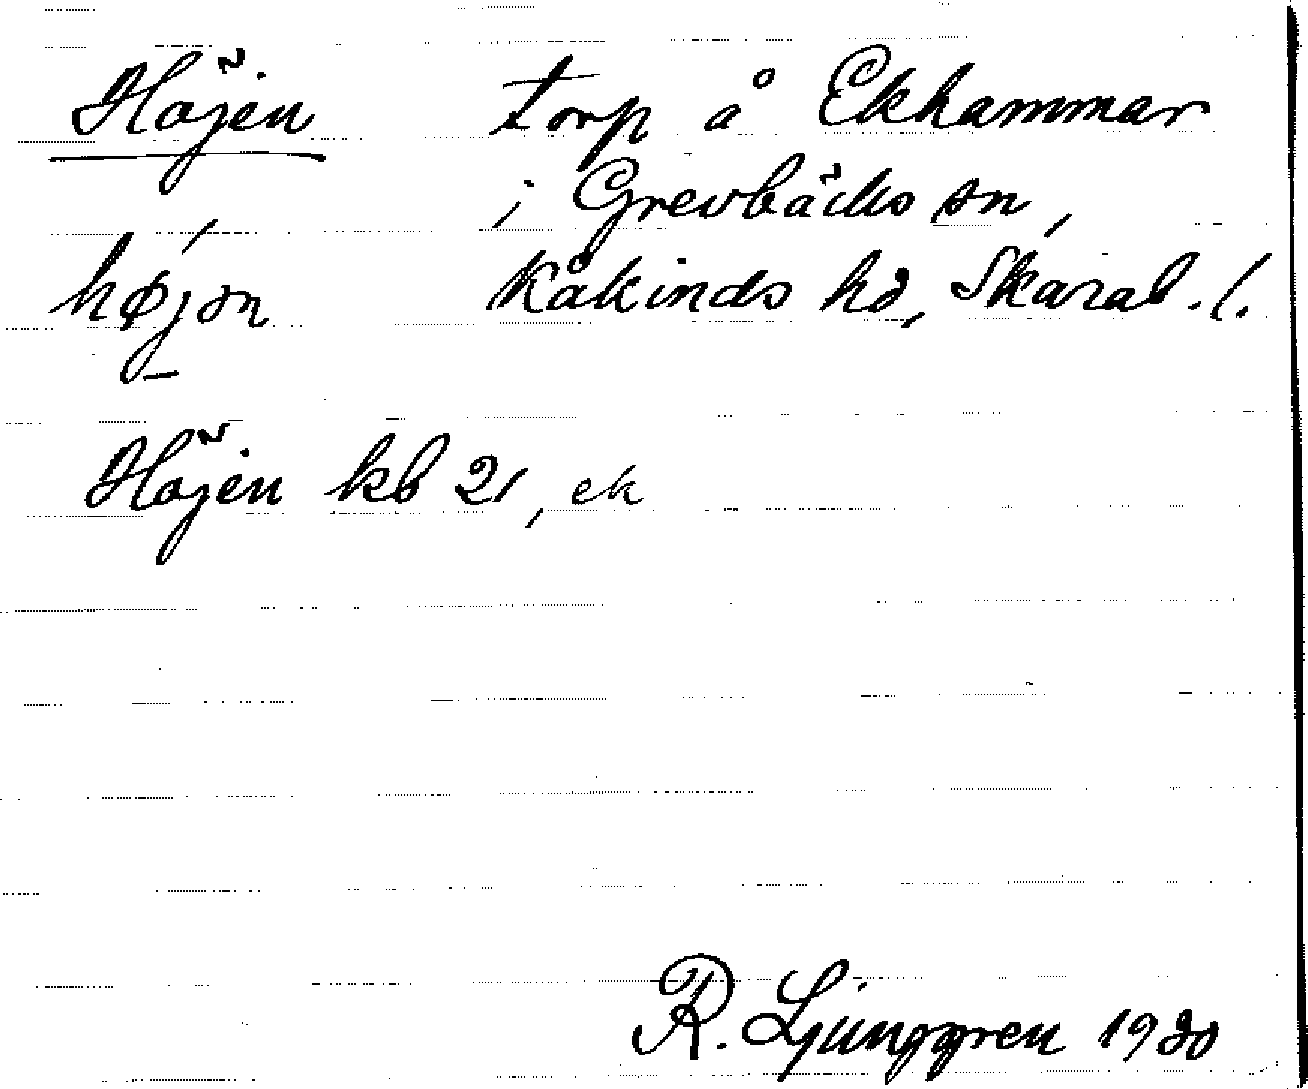 Höjen torp å Ekhammar
i Grevbäcks sn,
højən Kåkinds hd, Skarab. l.
Höjen kb 21, ek
R. Ljunggren 1930